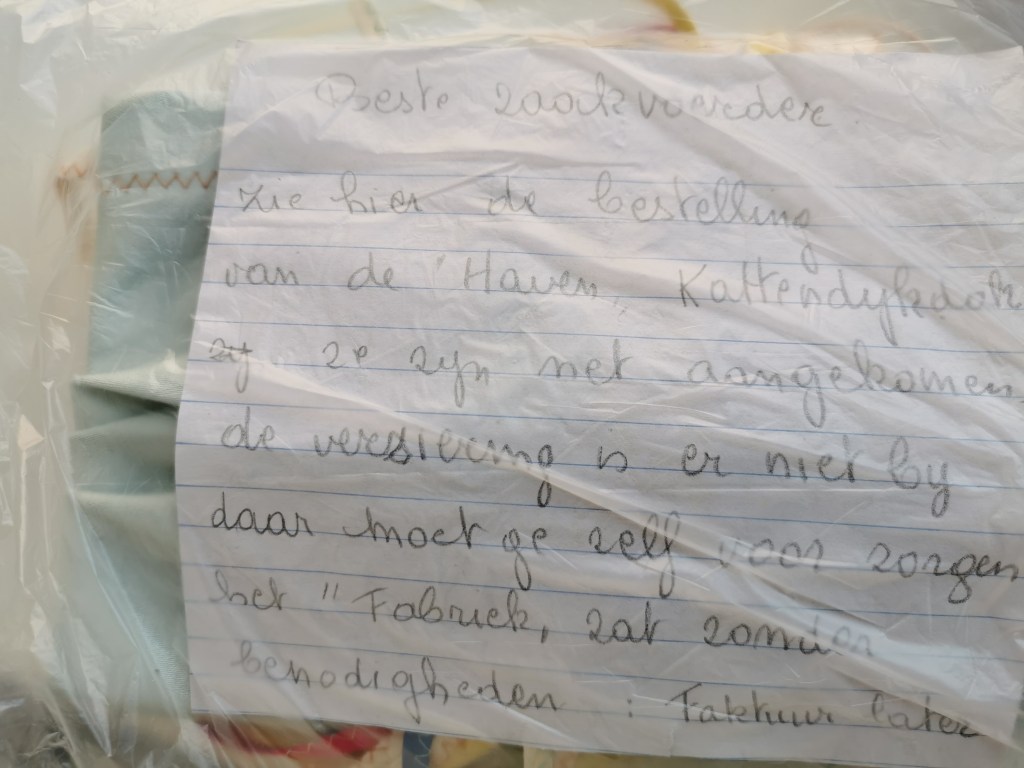 Beste zaakvoerder
zie hier de bestelling
van de "Haven, Kattendykdok
zy ze zyn net aangekomen
de versiering is er niet by
daar moet ge zelf voor zorgen
het "Fabriek, zat zonder
benodigheden : Faktuur later